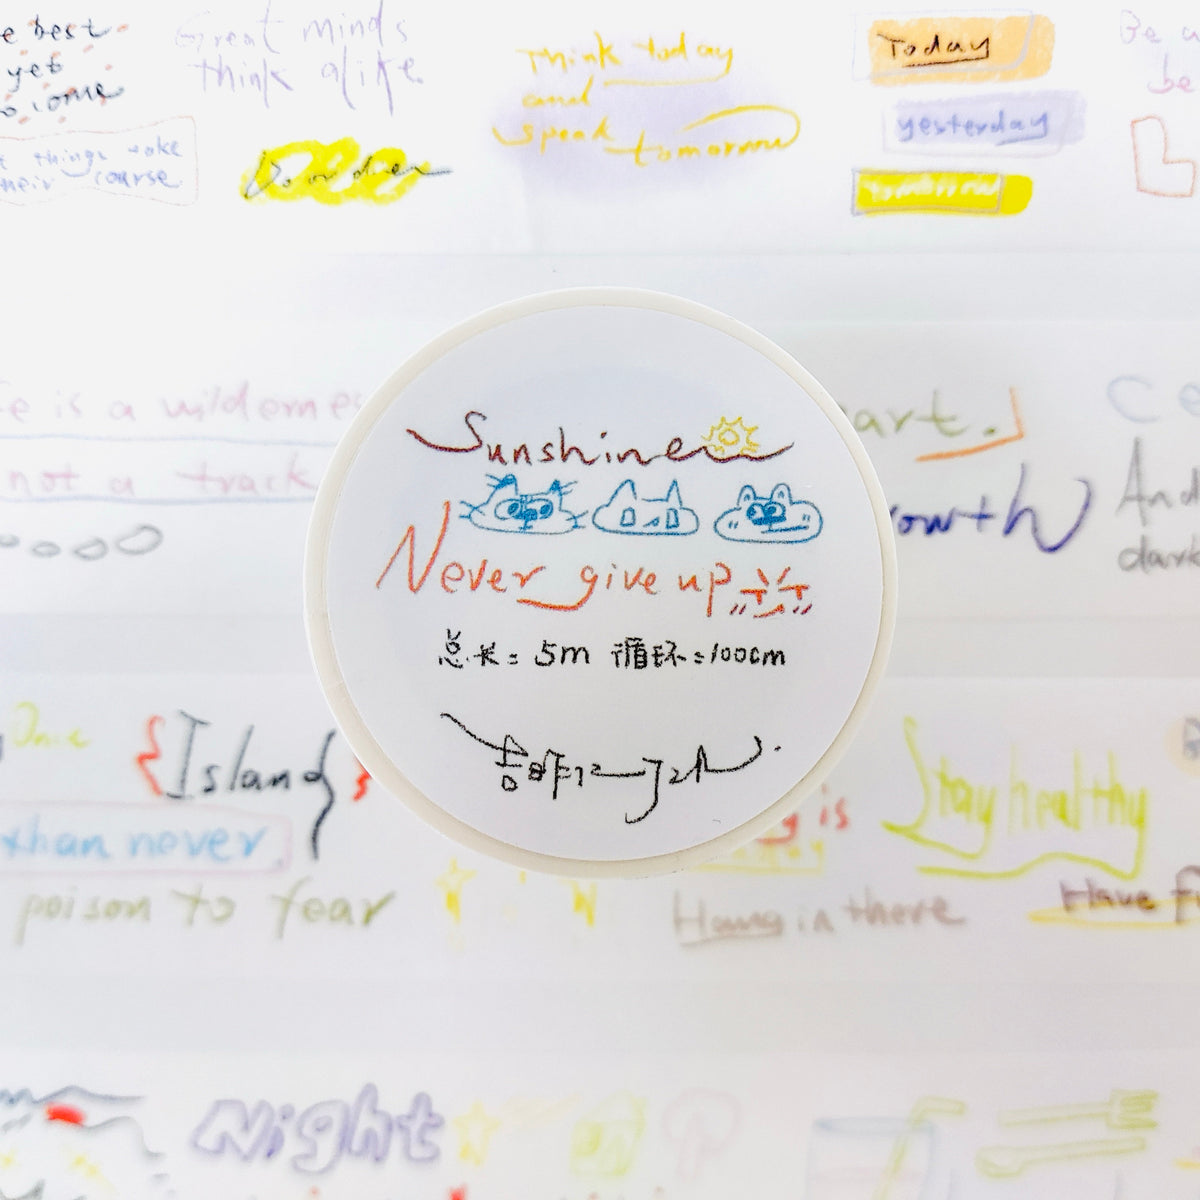 e best
yet
to come
Great minds
think alike.
Think today
and
speak tomorrow
Today
yesterday
tomorrow
Be a
be
t things take
their course.
e is a wilderness
not a track
art.
owth
And
dark
Sunshine
Never give up
总长=5m 循环=100cm
Once
{Island}
than never.
poison to fear
is
Stay healthy
Hang in there
Have f
Night